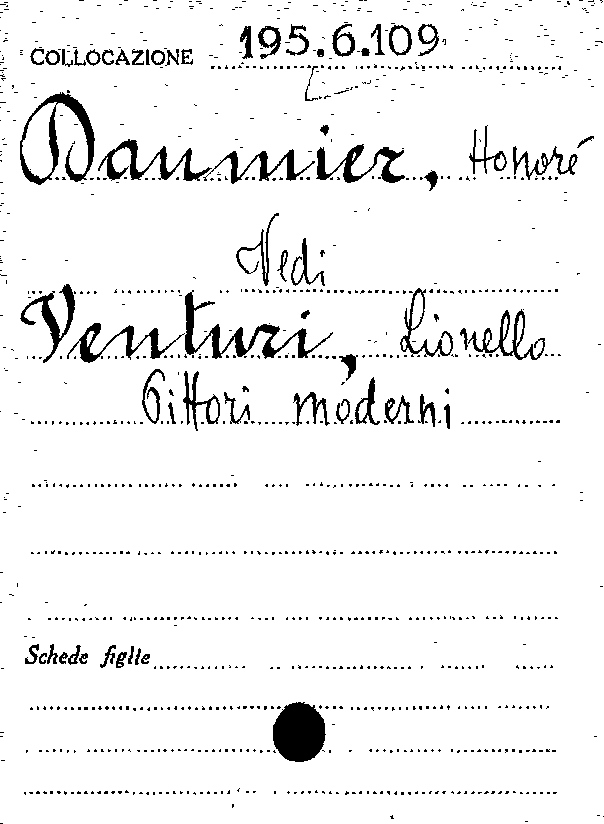 COLLOCAZIONE 195.6.109
Daumier, Honoré
Vedi
Venturi, Lionello
Pittori moderni
Schede figlie